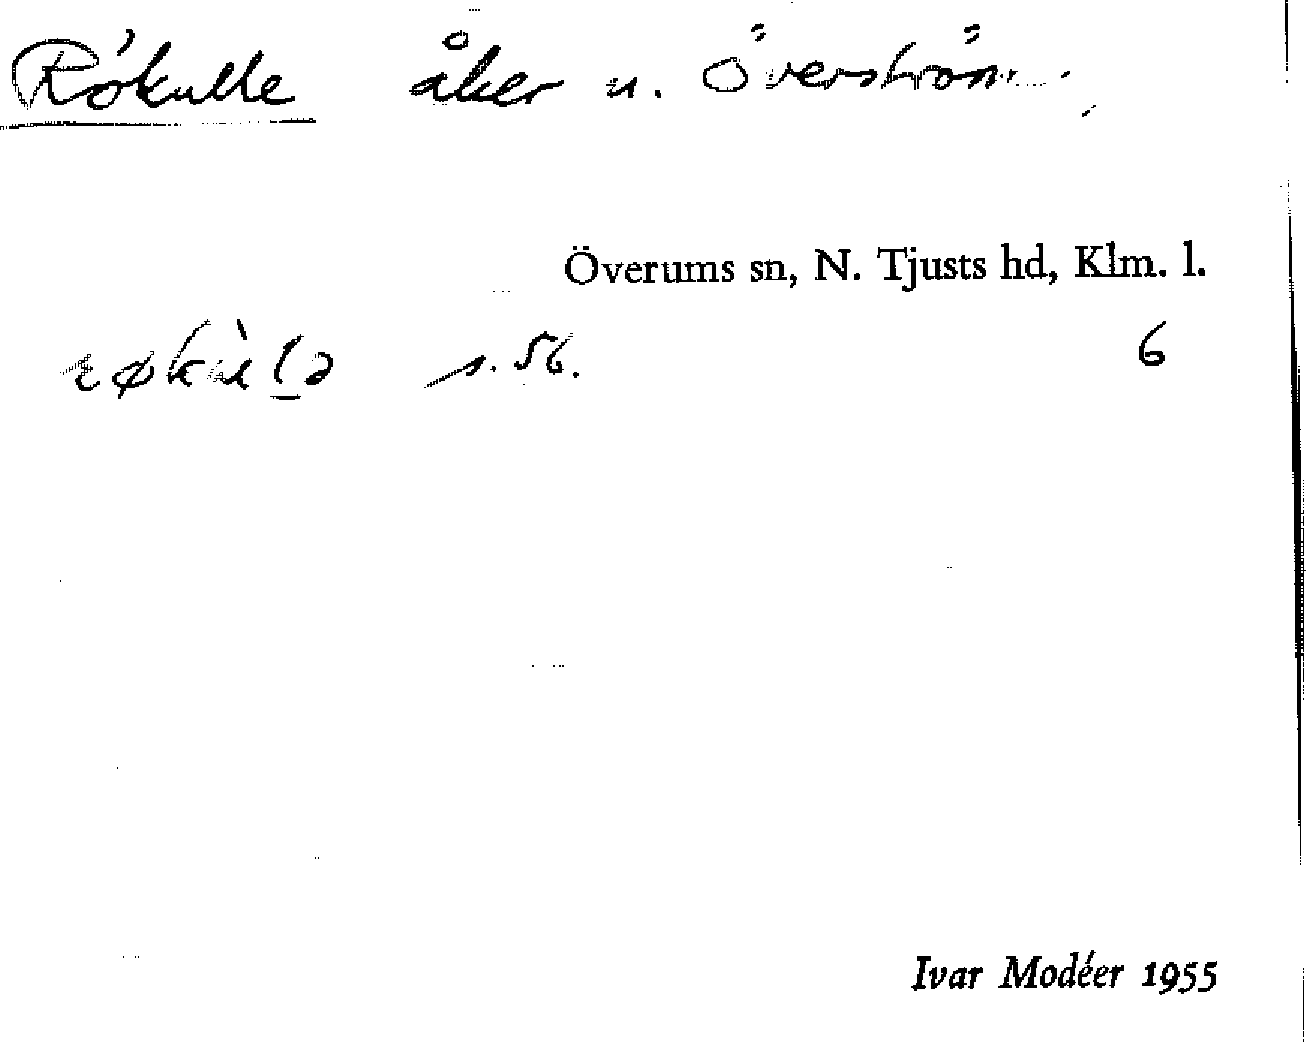 Rökulle åker u. Överström
Överums sn, N. Tjusts hd, Klm. l.
røkùlə s. 56. 6
Ivar Modéer 1955